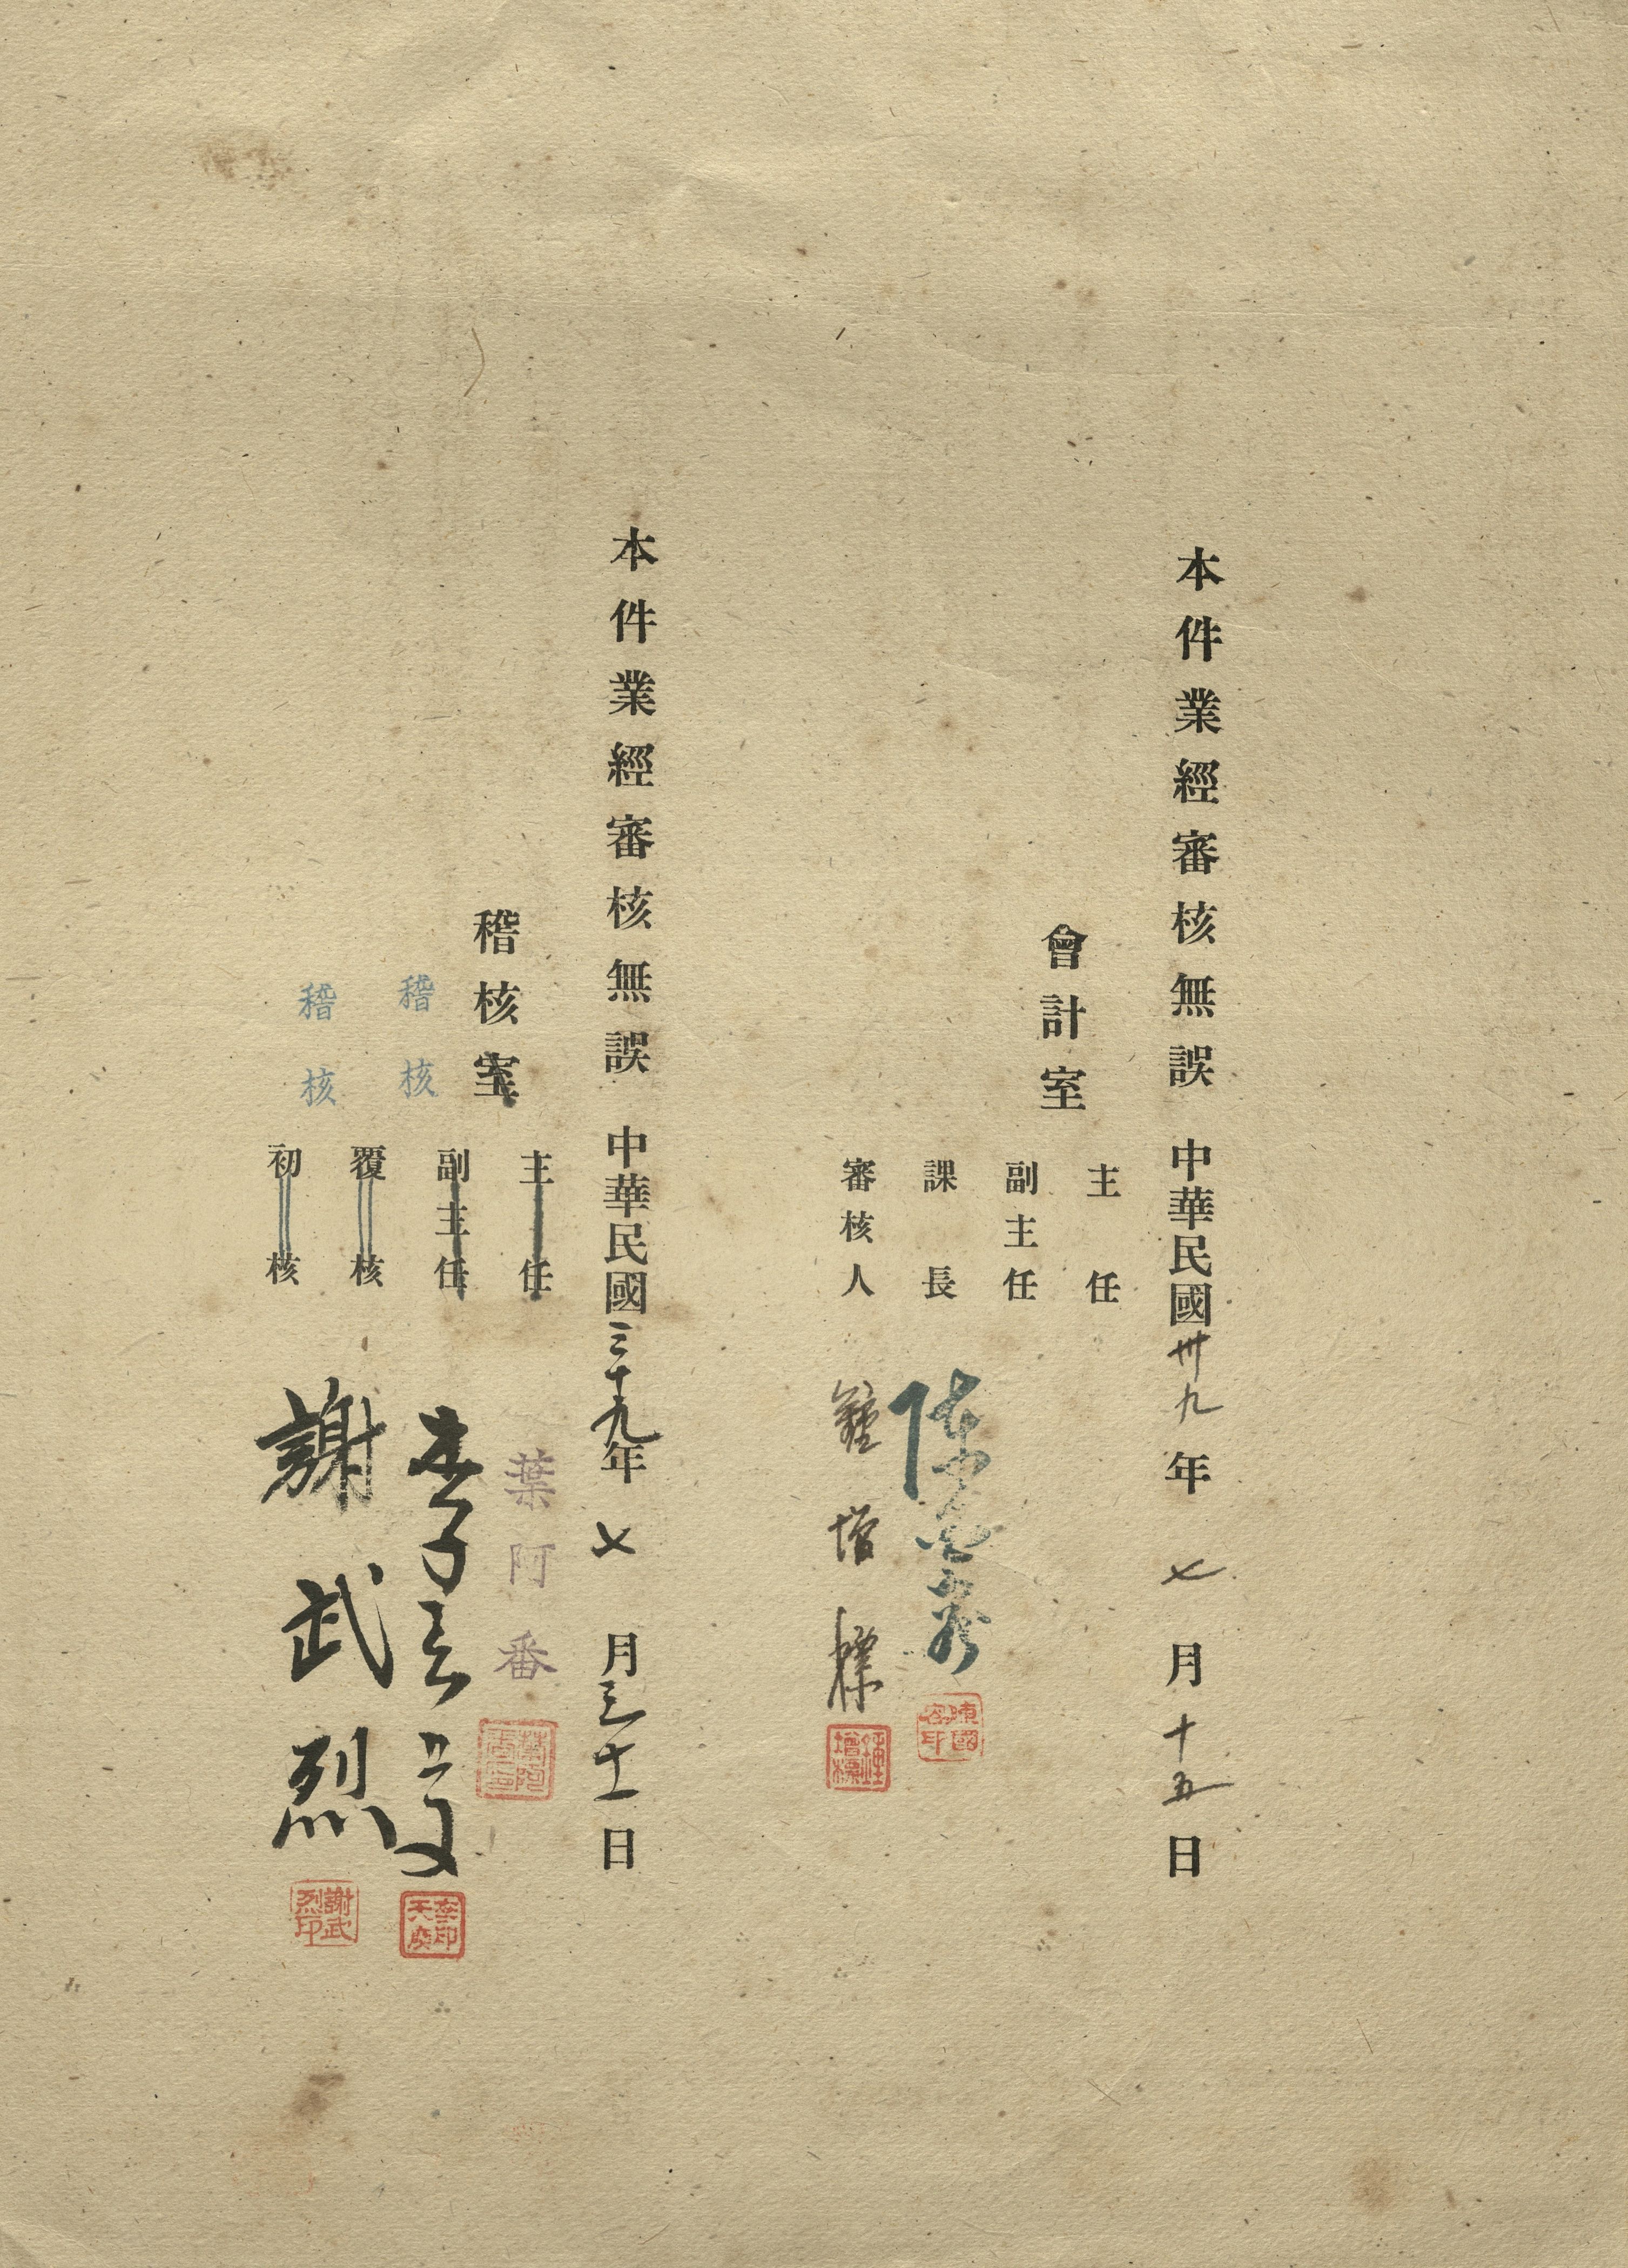 本件業經審核無誤 中華民國卅九年七月十五日
會計室
主任
副主任
課長 陳
陳國
印
審核人 鍾增標
鍾增標
本件業經審核無誤 中華民國三十九年七月三十一日
稽核室
主任 葉阿番
副主任
稽核
覆核 李
李印
天
稽核
初核 謝武烈
謝武烈印